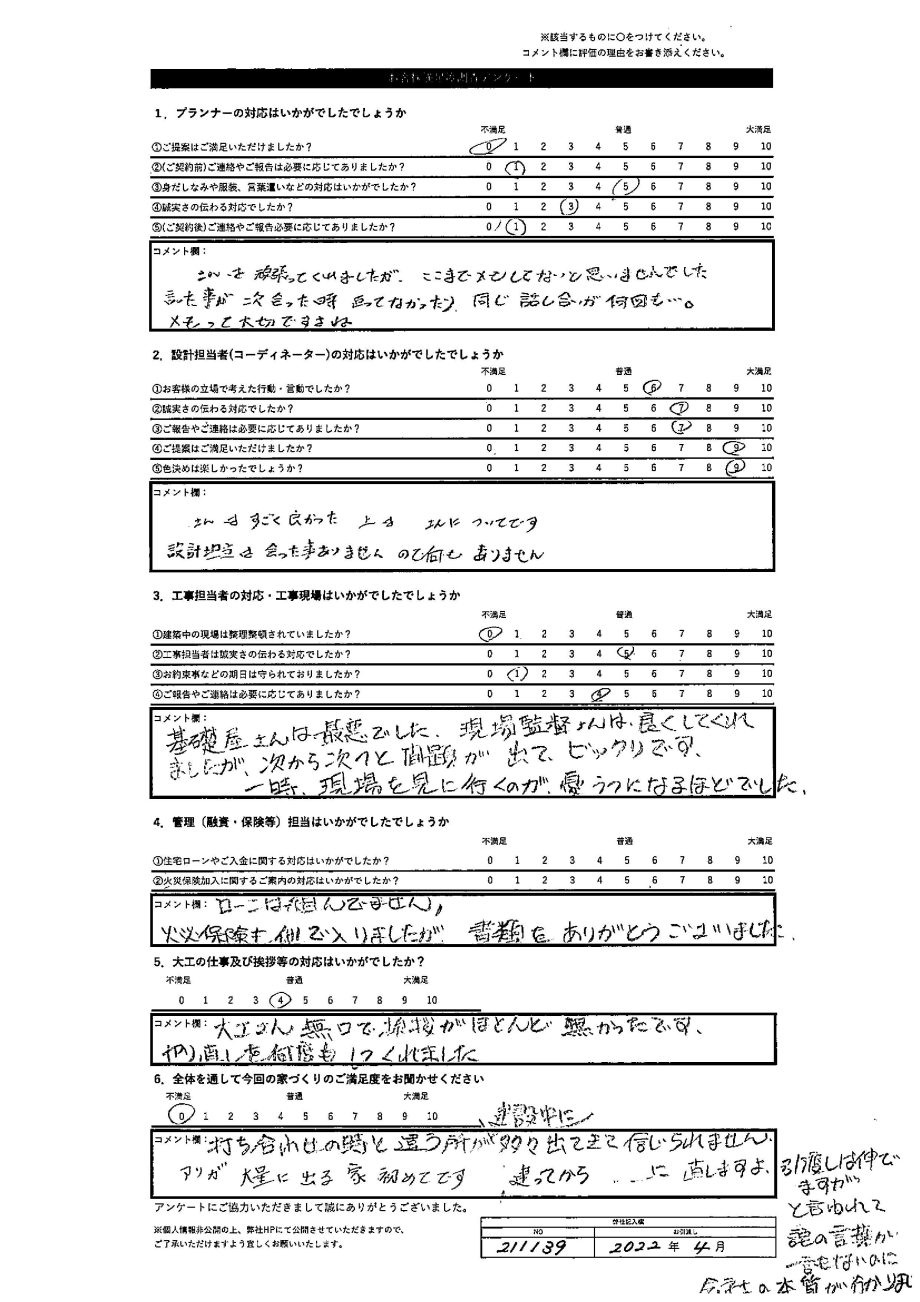 ※該当するものに〇をつけてください。
コメント欄に評価の理由をお書き添えください。
お客様満足度調査アンケート
1．プランナーの対応はいかがでしたでしょうか
不満足 普通 大満足
①ご提案はご満足いただけましたか？ 0 1 2 3 4 5 6 7 8 9 10
②(ご契約前)ご連絡やご報告は必要に応じてありましたか？ 0 1 2 3 4 5 6 7 8 9 10
③身だしなみや服装、言葉遣いなどの対応はいかがでしたか？ 0 1 2 3 4 5 6 7 8 9 10
④誠実さの伝わる対応でしたか？ 0 1 2 3 4 5 6 7 8 9 10
⑤(ご契約後)ご連絡やご報告必要に応じてありましたか？ 0 1 2 3 4 5 6 7 8 9 10
コメント欄：
さんは頑張ってくれましたが、ここまでメモしてないと思いませんでした
言った事が次会った時 言ってなかったり 同じ話し合いが何回も…。
メモって大切ですよね
2．設計担当者(コーディネーター)の対応はいかがでしたでしょうか
不満足 普通 大満足
①お客様の立場で考えた行動・言動でしたか？ 0 1 2 3 4 5 6 7 8 9 10
②誠実さの伝わる対応でしたか？ 0 1 2 3 4 5 6 7 8 9 10
③ご報告やご連絡は必要に応じてありましたか？ 0 1 2 3 4 5 6 7 8 9 10
④ご提案はご満足いただけましたか？ 0 1 2 3 4 5 6 7 8 9 10
⑤色決めは楽しかったでしょうか？ 0 1 2 3 4 5 6 7 8 9 10
コメント欄：
さんはすごく良かった 上は さんについてです
設計担当は会った事ありませんので何もありません
3．工事担当者の対応・工事現場はいかがでしたでしょうか
不満足 普通 大満足
①建築中の現場は整理整頓されていましたか？ 0 1 2 3 4 5 6 7 8 9 10
②工事担当者は誠実さの伝わる対応でしたか？ 0 1 2 3 4 5 6 7 8 9 10
③お約束事などの期日は守られておりましたか？ 0 1 2 3 4 5 6 7 8 9 10
④ご報告やご連絡は必要に応じてありましたか？ 0 1 2 3 4 5 6 7 8 9 10
コメント欄：
基礎屋さんは最悪でした、現場監督さんは、良くしてくれ
ましたが、次から次へと問題が出て、ビックリです、
一時、現場を見に行くのが、憂うつになるほどでした、
4．管理（融資・保険等）担当はいかがでしたでしょうか
不満足 普通 大満足
①住宅ローンやご入金に関する対応はいかがでしたか？ 0 1 2 3 4 5 6 7 8 9 10
②火災保険加入に関するご案内の対応はいかがでしたか？ 0 1 2 3 4 5 6 7 8 9 10
コメント欄： ローンは組んでません,
火災保険も、他で入りましたが、書類をありがとうございました、
5．大工の仕事及び挨拶等の対応はいかがでしたか？
不満足 普通 大満足
0 1 2 3 4 5 6 7 8 9 10
コメント欄： 大工さん無口で、挨拶がほとんど無かったです、
やり直しを何度もしてくれました
6．全体を通して今回の家づくりのご満足度をお聞かせください
不満足 普通 大満足
0 1 2 3 4 5 6 7 8 9 10
建設中に
コメント欄： 打ち合わせの時と違う所が多々出てきて信じられません、
アリが 大量に出る家 初めてです 建ってから に直しますよ、
引渡しは伸で
ますが
と言われて
の言葉が
一言もないのに
会社の本質が分かり
アンケートにご協力いただきまして誠にありがとうございました。
※個人情報非公開の上、弊社HPにて公開させていただきますので、
ご了承いただけますよう宜しくお願いいたします。
弊社記入欄
NO お引渡し
211139 2022年 4月